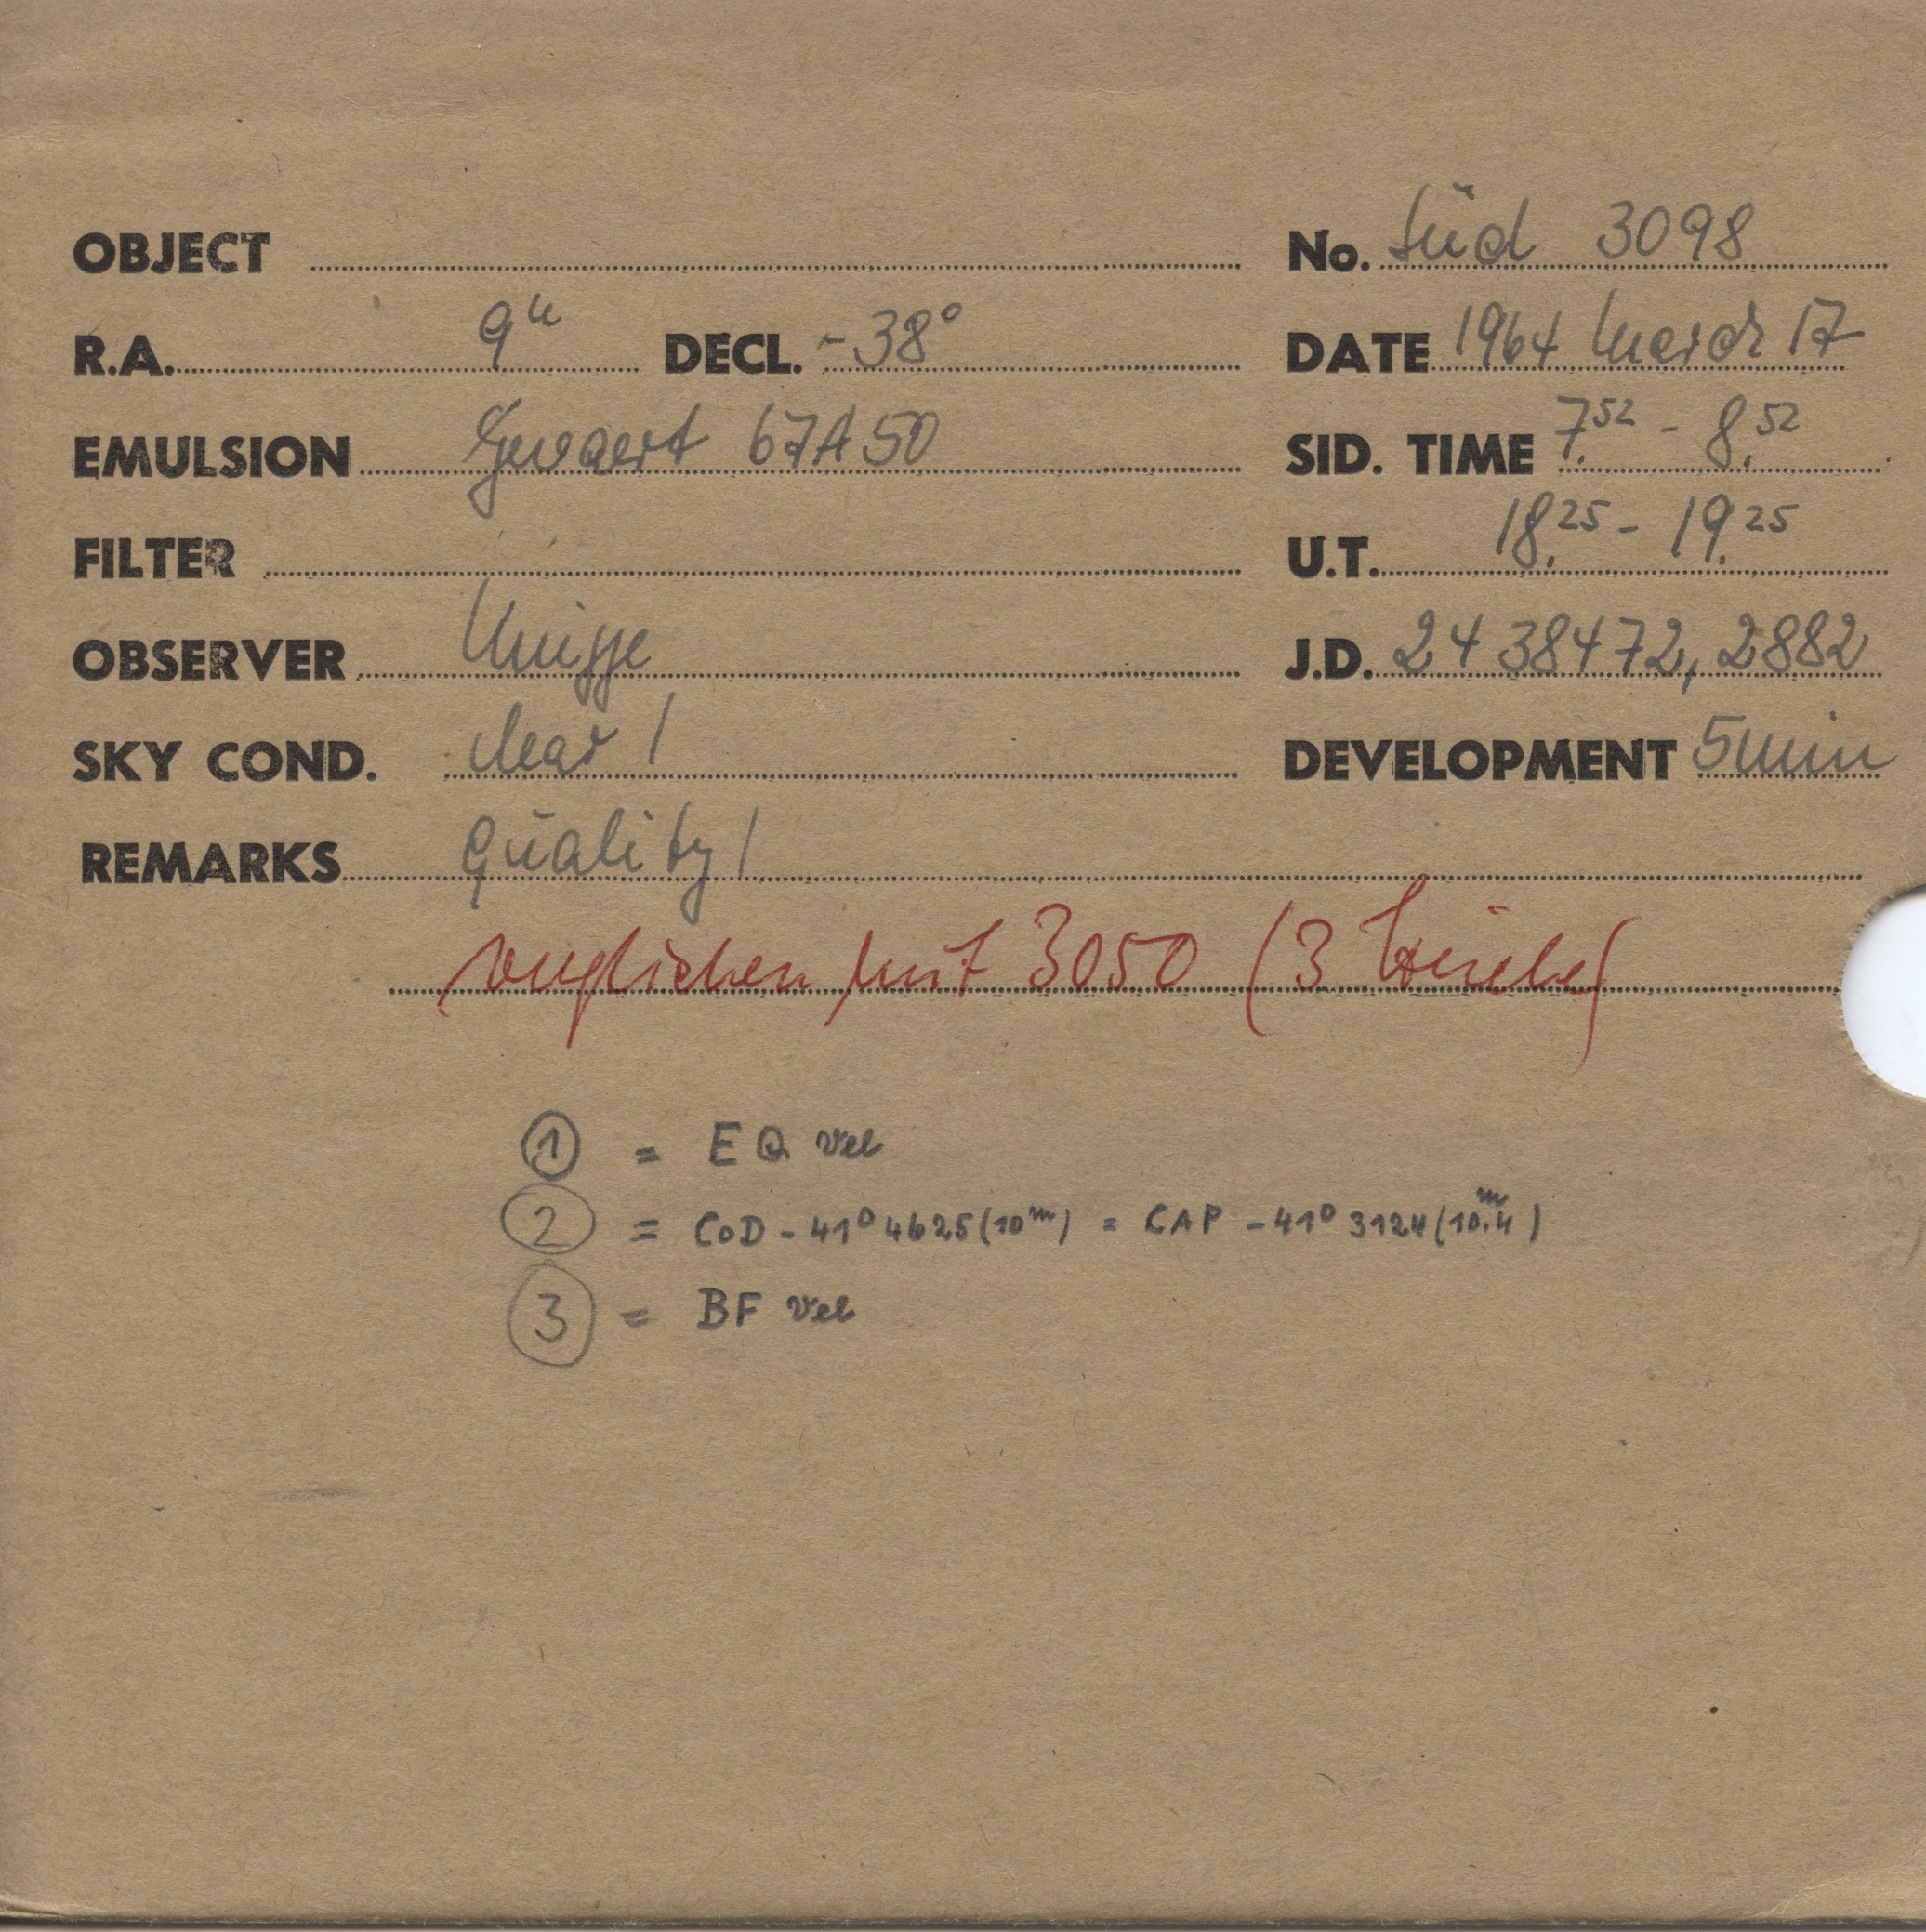 OBJECT No. Süd 3098
R.A. 9h DECL. -38° DATE 1964 March 17
EMULSION Gevaert 67A50 SID. TIME 7.52 - 8.52
FILTER U.T. 18.25 - 19.25
OBSERVER J.D. 24 38472,2882
SKY COND. clear 1 DEVELOPMENT 5 min
REMARKS Quality 1
verglichen mit 3050 (3
① = EQ Vel
② = CoD -41° 4625 (10m) = CAP -41° 3124 (10.m4)
③ = BF Vel